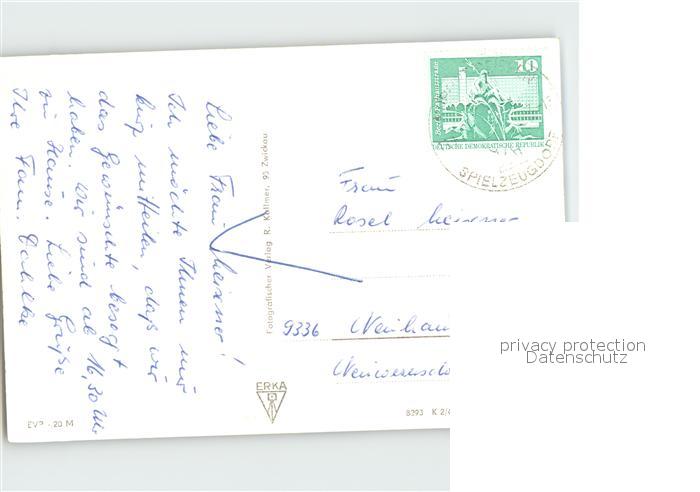 Liebe Frau Meixner!
Ich möchte Ihnen nur
kurz mitteilen, daß wir
das Gewünschte besorgt
haben. Wir sind ab 16,30 Uhr
zu Hause. Liebe Grüße
Ihre Fam. Dahlke
Fotografischer Verlag R. Kallmer, 95 Zwickau
10
DEUTSCHE DEMOKRATISCHE REPUBLIK
SPIELZEUGDORF
Frau
Rosel Meixner
9336
privacy protection
Datenschutz
ERKA
EVP -.20 M
8293 K 2/